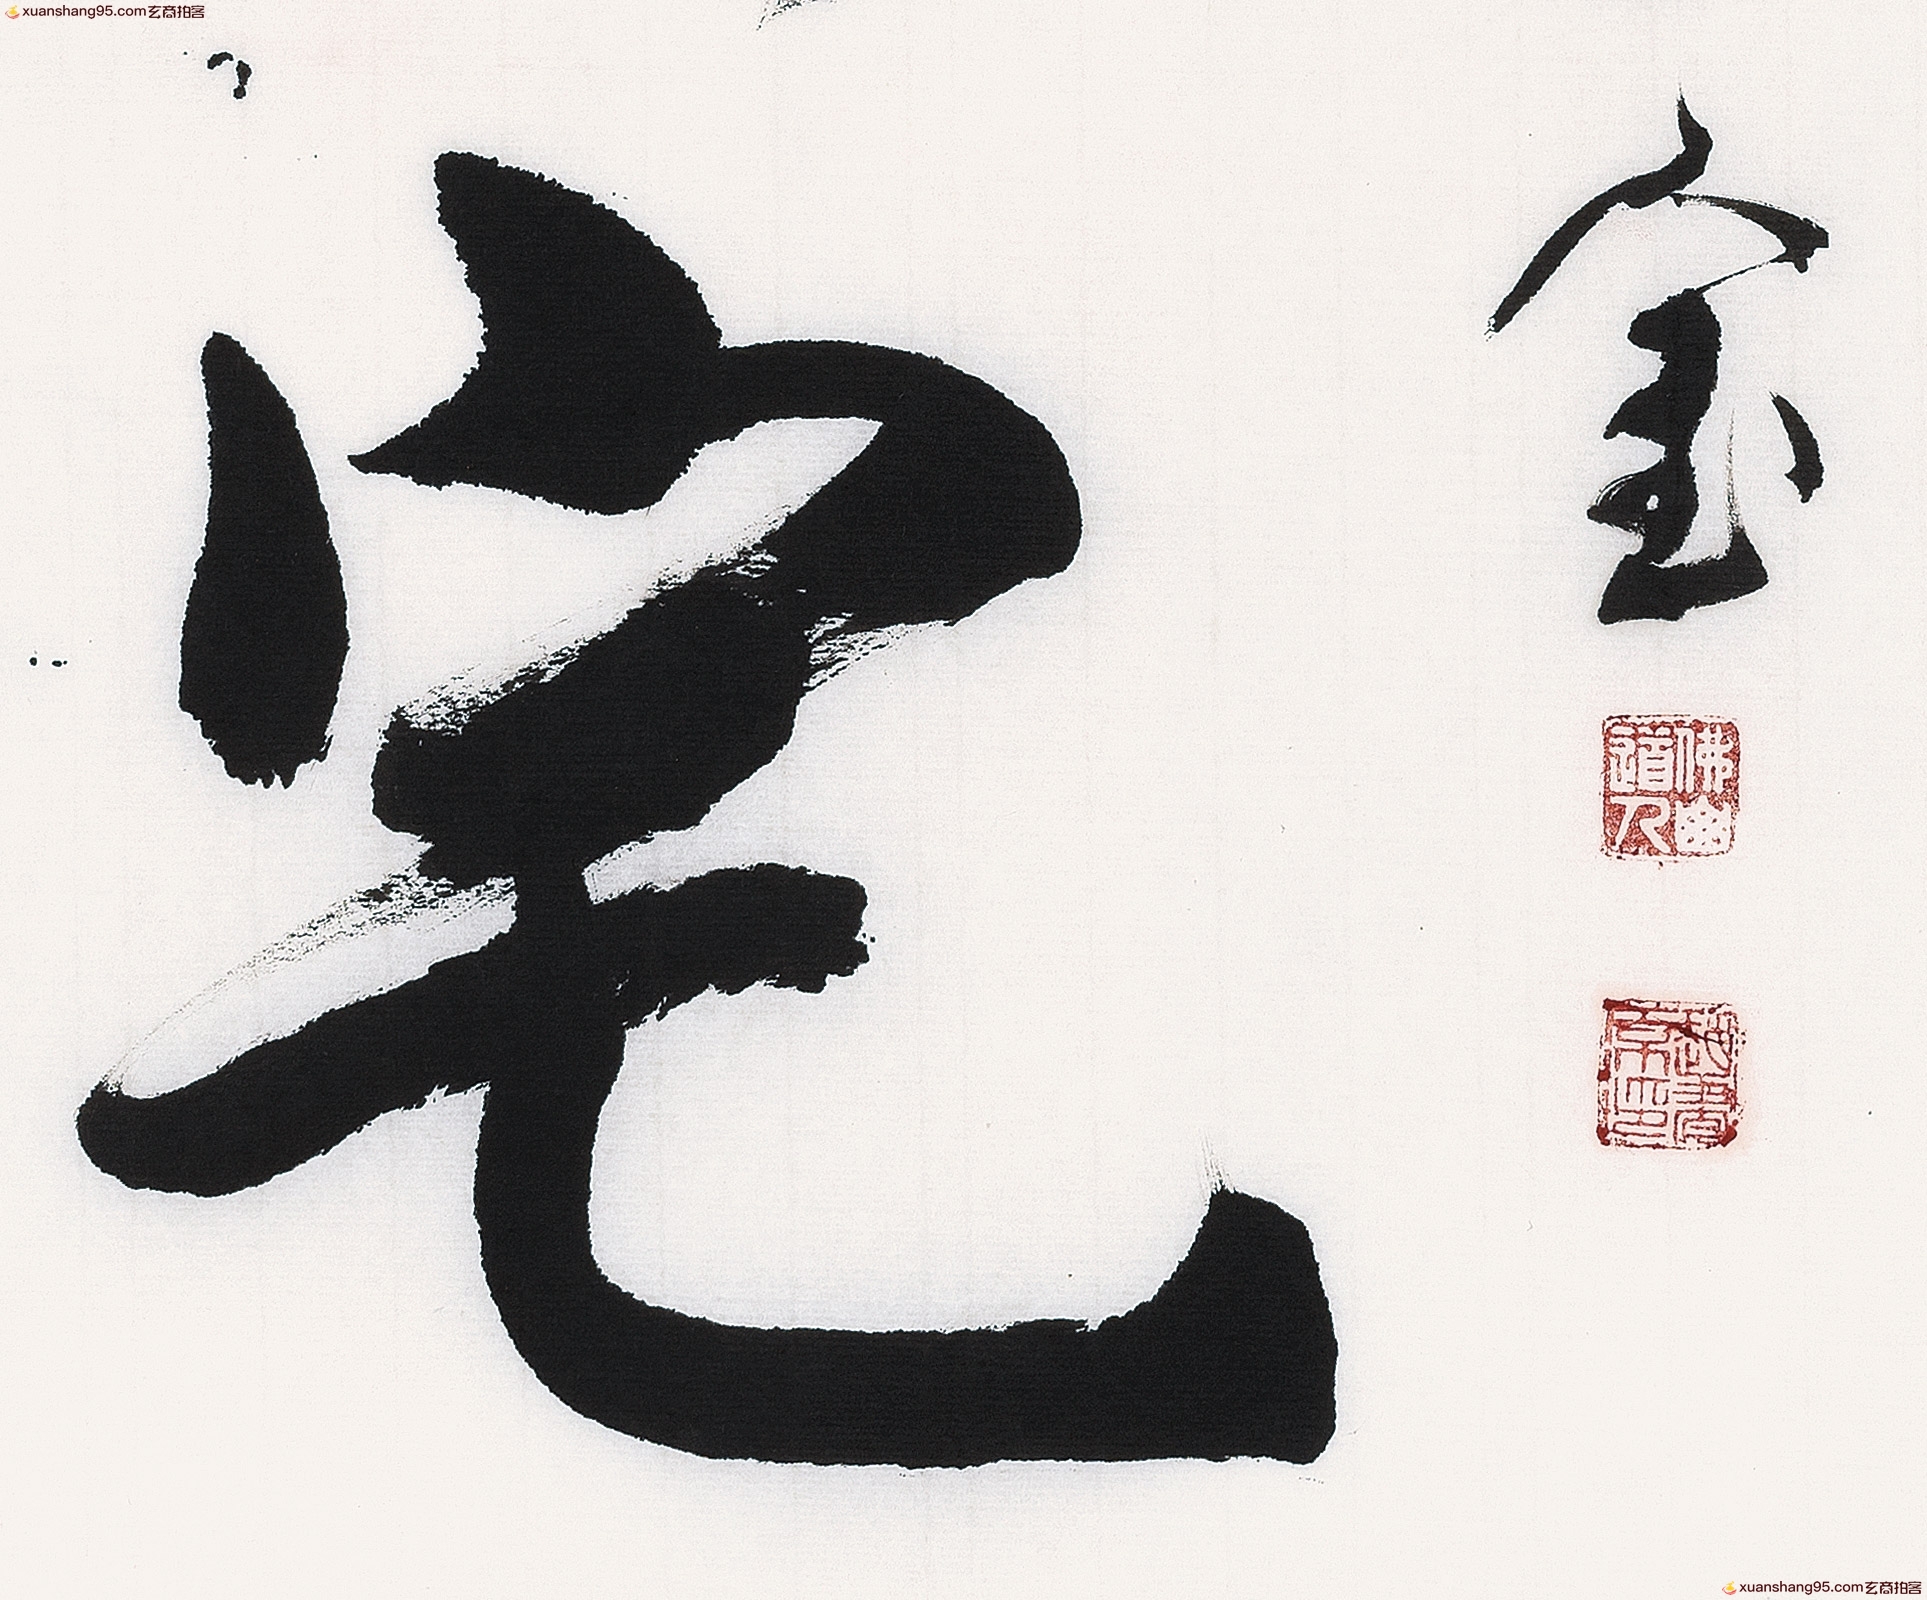 xuanshang95.com玄商拍客
宅
金
佛幽道人
xuanshang95.com玄商拍客